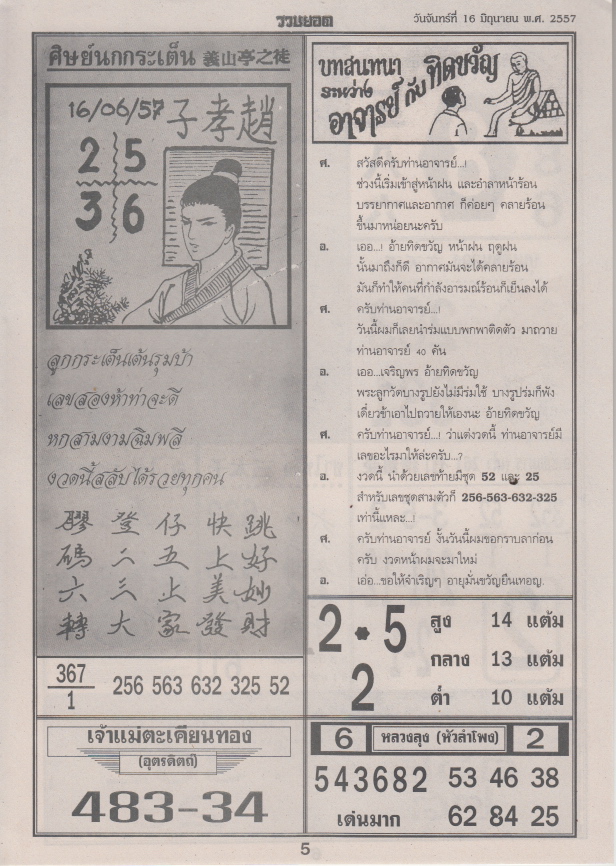 รวมยอด
วันจันทร์ที่ 16 มิถุนายน พ.ศ. 2557
ศิษย์นกกระเต็น 義山亭之徒
16/06/57 子孝趙
2 5
3 6
ลูกกระเต็นเต้นรุมบ้า
เลขสองห้าท่าจะดี
หกสามงามฉิมพลี
งวดนี้สลับได้รวยทุกคน
膠 登 仔 快 跳
碼 二 五 上 好
六 三 止 美 妙
轉 大 家 發 財
367
1
256 563 632 325 52
เจ้าแม่ตะเคียนทอง
(อุตรดิตถ์)
483-34
บทสนทนา
ระหว่าง
อาจารย์ กับ ทิดขวัญ
ศ. สวัสดีครับท่านอาจารย์...!
ช่วงนี้เริ่มเข้าสู่หน้าฝน และอำลาหน้าร้อน
บรรยากาศและอากาศ ก็ค่อยๆ คลายร้อน
ขึ้นมาหน่อยนะครับ
อ. เออ...! อ้ายทิดขวัญ หน้าฝน ฤดูฝน
นั้นมาถึงก็ดี อากาศมันจะได้คลายร้อน
มันก็ทำให้คนที่กำลังอารมณ์ร้อนก็เย็นลงได้
ศ. ครับท่านอาจารย์...!
วันนี้ผมก็เลยนำร่มแบบพกพาติดตัว มาถวาย
ท่านอาจารย์ 40 คัน
อ. เออ...เจริญพร อ้ายทิดขวัญ
พระลูกวัดบางรูปยังไม่มีร่มใช้ บางรูปร่มก็พัง
เดี๋ยวข้าเอาไปถวายให้เองนะ อ้ายทิดขวัญ
ศ. ครับท่านอาจารย์...! ว่าแต่งวดนี้ ท่านอาจารย์มี
เลขอะไรมาให้ล่ะครับ...?
อ. งวดนี้ นำด้วยเลขท้ายมีชุด 52 และ 25
สำหรับเลขชุดสามตัวก็ 256-563-632-325
เท่านี้แหละ...!
ศ. ครับท่านอาจารย์ งั้นวันนี้ผมขอกราบลาก่อน
ครับ งวดหน้าผมจะมาใหม่
อ. เอ่อ...ขอให้จำเริญๆ อายุมั่นขวัญยืนเทอญ.
2•5
2
สูง 14 แต้ม
กลาง 13 แต้ม
ต่ำ 10 แต้ม
6 หลวงลุง (หัวลำโพง) 2
543682 53 46 38
เด่นมาก 62 84 25
5